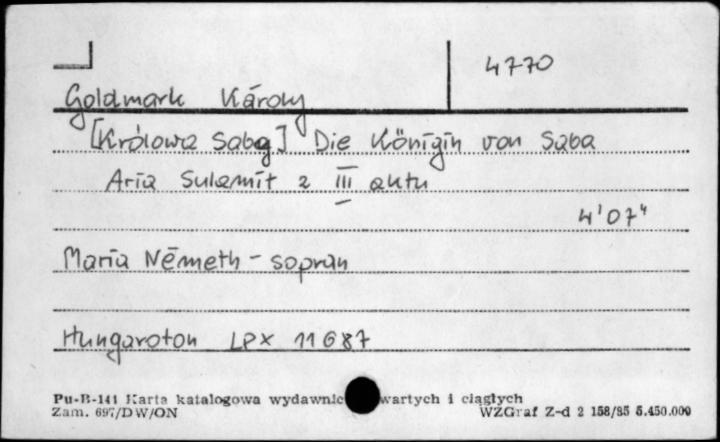 4770
Goldmark Károly
[Królowa Saby] Die Königin von Saba
Aria Sulamit z III aktu
4'07"
Maria Németh - sopran
Hungaroton LPX 11687
Pu-B-141 Karta katalogowa wydawnic wartych i ciągłych
Zam. 697/DW/ON WZGraf Z-d 2 158/85 5.450.000